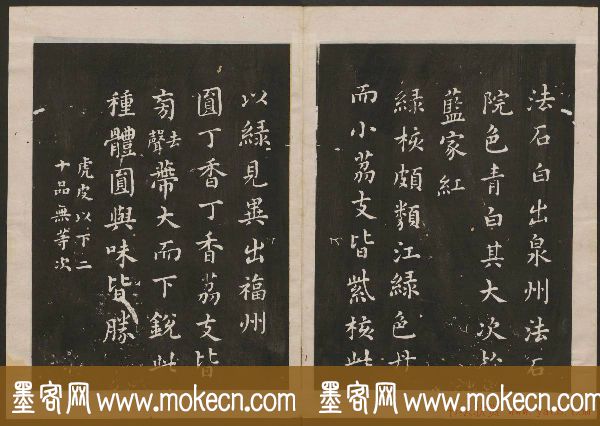 法石白出泉州法石
院色青白其大次於
藍家紅
綠核頗類江綠色丹
而小荔支皆紫核此
以綠見異出福州
圓丁香丁香荔支皆
旁去聲蔕大而下銳此
種體圓與味皆勝
虎皮以下二
十品無等次
墨客网 www.mokecn.com 墨客网 www.mokecn.com